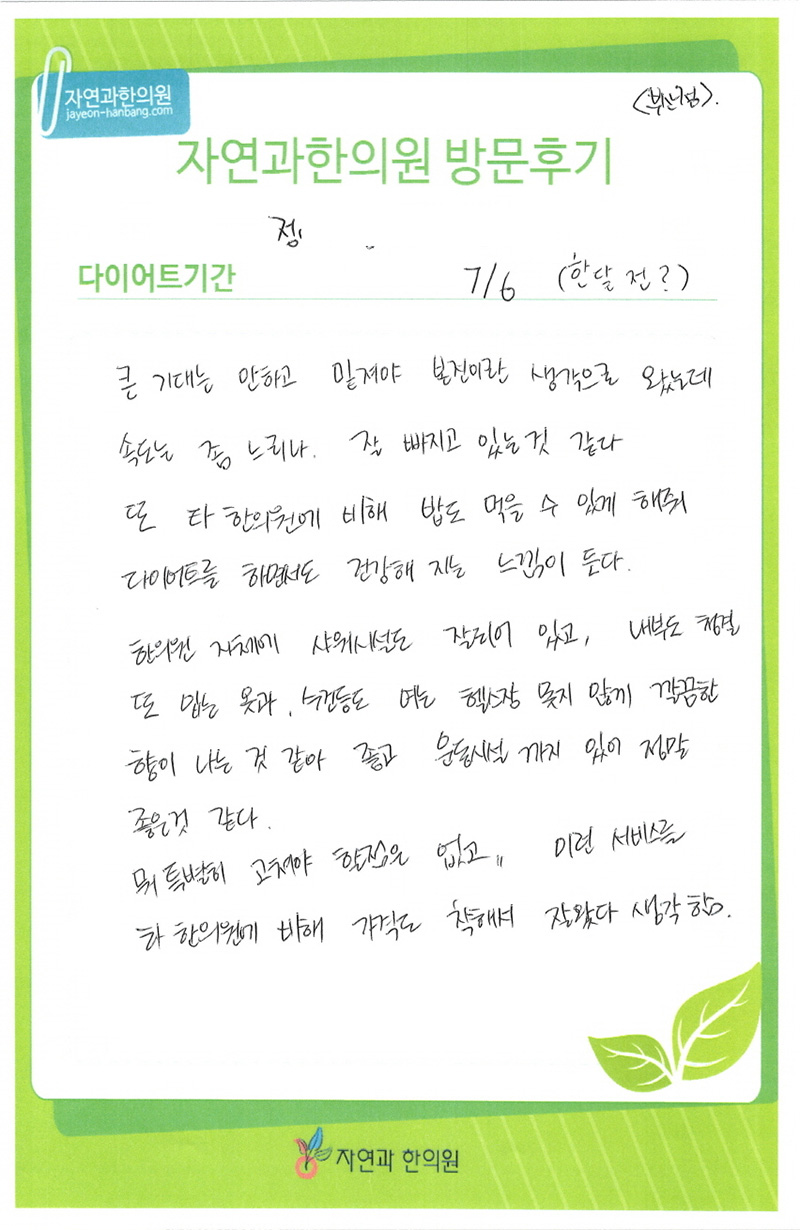 자연과한의원
jayeon-hanbang.com
<부산점>.
자연과한의원 방문후기
정
다이어트기간 7/6 (한달 전?)
큰 기대는 안하고 밑져야 본전이란 생각으로 왔는데
속도는 좀 느리나. 잘 빠지고 있는것 같다
또 타 한의원에 비해 밥도 먹을 수 있게 해줘
다이어트를 하면서도 건강해 지는 느낌이 든다.
한의원 자체에 샤워시설도 잘되어 있고, 내부도 청결
또 입는 옷과, 수건등도 여는 헬스장 못지 않게 깔끔한
향이 나는 것 같아 좋고 운동시설 까지 있어 정말
좋은것 같다.
뭐 특별히 고쳐야 할점은 없고,, 이런 서비스를
타 한의원에 비해 가격도 착해서 잘왔다 생각 함.
자연과 한의원